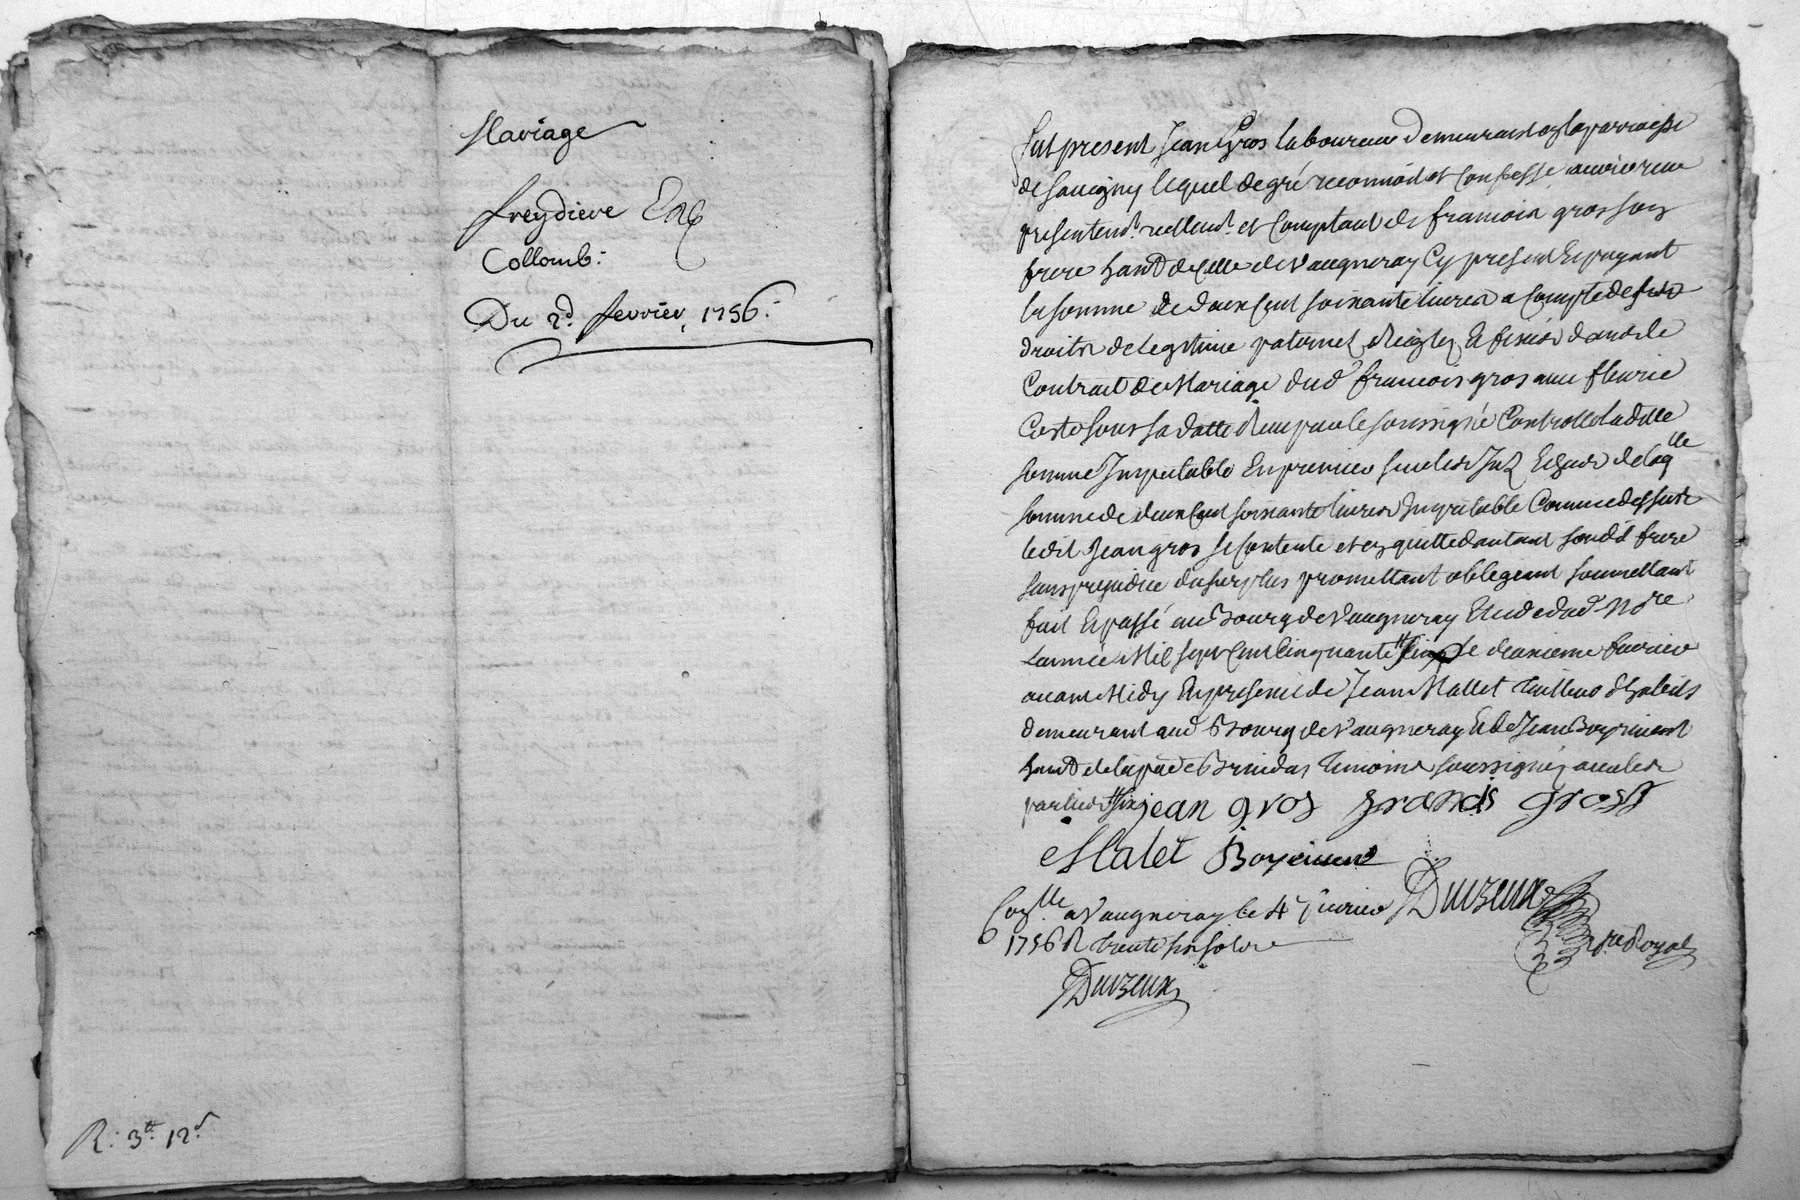 Mariage
freydiere Et
Collomb:
Du 2d. fevrier, 1756:
R: 3tt 12s
fut present Jean Gros laboureur demeurant en la parroisse
de Savigny lequel de gré reconnoit et Confesse avoir reu
presentemt. reellemt. et Comptant de francois gros son
frere hant de Celle de Vaugneray Cy present Et payant
la somme de deux Cent soixante livres a Compte de ses
droits de Legitime paternel Reiglez Et fixés dans le
Contract de Mariage dud. francois gros avec fleurie
Coste sous sa datte Receu par le soussigné Controllé ladite
somme Imputable En premier sur les Int. Echus de laqlle
somme de deux Cent soixante livres Imputable Comme dessus
ledit Jean gros se Contente et en quitte d'autant sond. frere
sans prejudice du surplus promettant obligeant soumettant
fait Et passé au Bourg de Vaugneray Etude dud. Nore
Lannée Mil sept Cent Cinquante Six le deuxieme fevrier
avant Midy En presence de Jean Mallet tailleur d'habits
demeurant aud. Bourg de Vaugneray Et de Jean Boyrivent
hant de la psse de Brindas temoins soussignés avec les
parties Six jean gros francis gross
Malet Boyrivent
Conllé a Vaugneray le 4 fevrier Duvzeux
1756 R. trente six sols nre Royal
Duvzeux